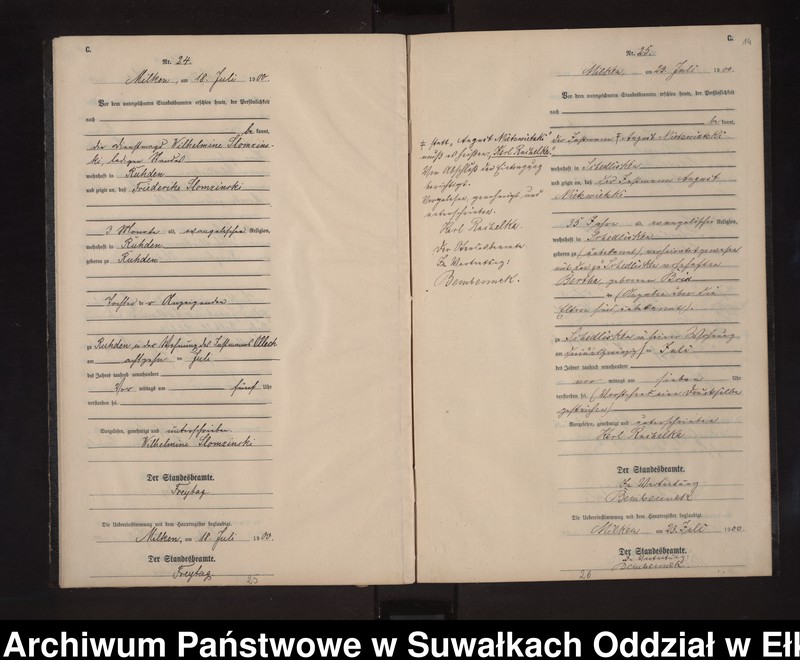 C.
Nr. 24.
Milken, am 18. Juli 1900.
Vor dem unterzeichneten Standesbeamten erschien heute, der Persönlichkeit
nach
be kannt,
die Dienstmagd Wilhelmine Slomzins-
ki, ledigen Standes
wohnhaft in Ruhden
und zeigte an, daß Friederike Slomzinski
3 Monate evangelischer Religion,
wohnhaft in Ruhden
geboren zu Ruhden
Tochter der Anzeigenden
zu Ruhden in der Wohnung des Losmanns Olleck
am achtzehn ten Juli
des Jahres tausend neunhundert
Vor mittags um fünf Uhr
verstorben sei.
Vorgelesen, genehmigt und unterschrieben
Wilhelmine Slomzinski
Der Standesbeamte.
Freytag
Die Uebereinstimmung mit dem Hauptregister beglaubigt.
Milken, am 18. Juli 1900.
Der Standesbeamte.
Freytag
25
C.
14
Nr. 25.
Milken, am 23. Juli 1900.
Vor dem unterzeichneten Standesbeamten erschien heute, der Persönlichkeit
nach
be kannt,
der Losmann ǂ August
wohnhaft in Schedlisken
und zeigte an, daß der Losmann August
35 Jahre evangelischer Religion,
wohnhaft in Schedlisken
geboren zu (unbekannt), verheiratet gewesen
mit der zu Schedlisken wohnhaften
Bertha, geborenen
(Angaben über die
Eltern sind unbekannt).
zu Schedlisken in seiner Wohnung
am Juli
des Jahres tausend neunhundert
vor mittags um sieben Uhr
verstorben sei. (Vorstehend eine Druckstelle
gestrichen)
Vorgelesen, genehmigt und unterschrieben
Karl Raizelka
Der Standesbeamte.
In Vertretung
Bembennek
Die Uebereinstimmung mit dem Hauptregister beglaubigt.
Milken am 23. Juli 1900
Der Standesbeamte.
In Vertretung:
Bembennek.
26
ǂ statt „August
muß es heißen „Karl Raizelka“
Vor Abschluß der Eintragung
berichtigt.
Vorgelesen, genehmigt und
unterschrieben
Karl Raizelka.
Der Standesbeamte
In Vertretung:
Bembennek.
Archiwum Państwowe w Suwałkach Oddział w Ełk